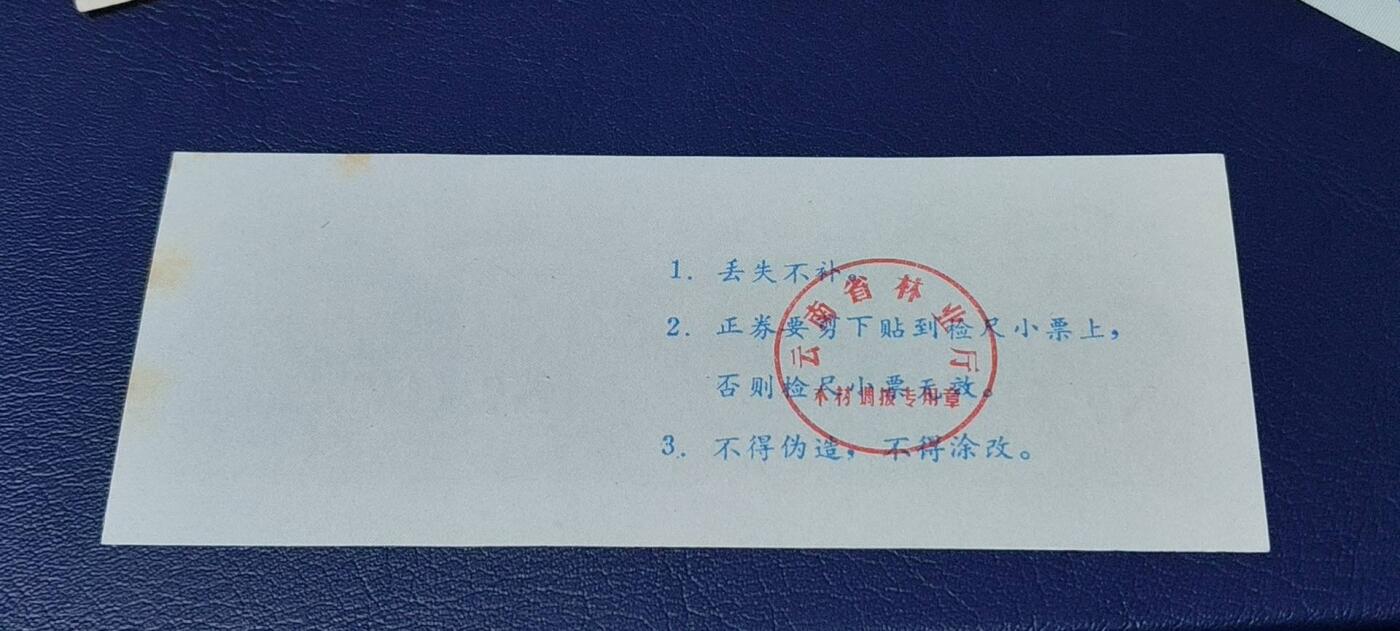 1. 丢失不补。
2. 正券要剪下贴到检尺小票上，
否则检尺小票无效。
3. 不得伪造，不得涂改。
云南省林业厅
木材调拨专用章